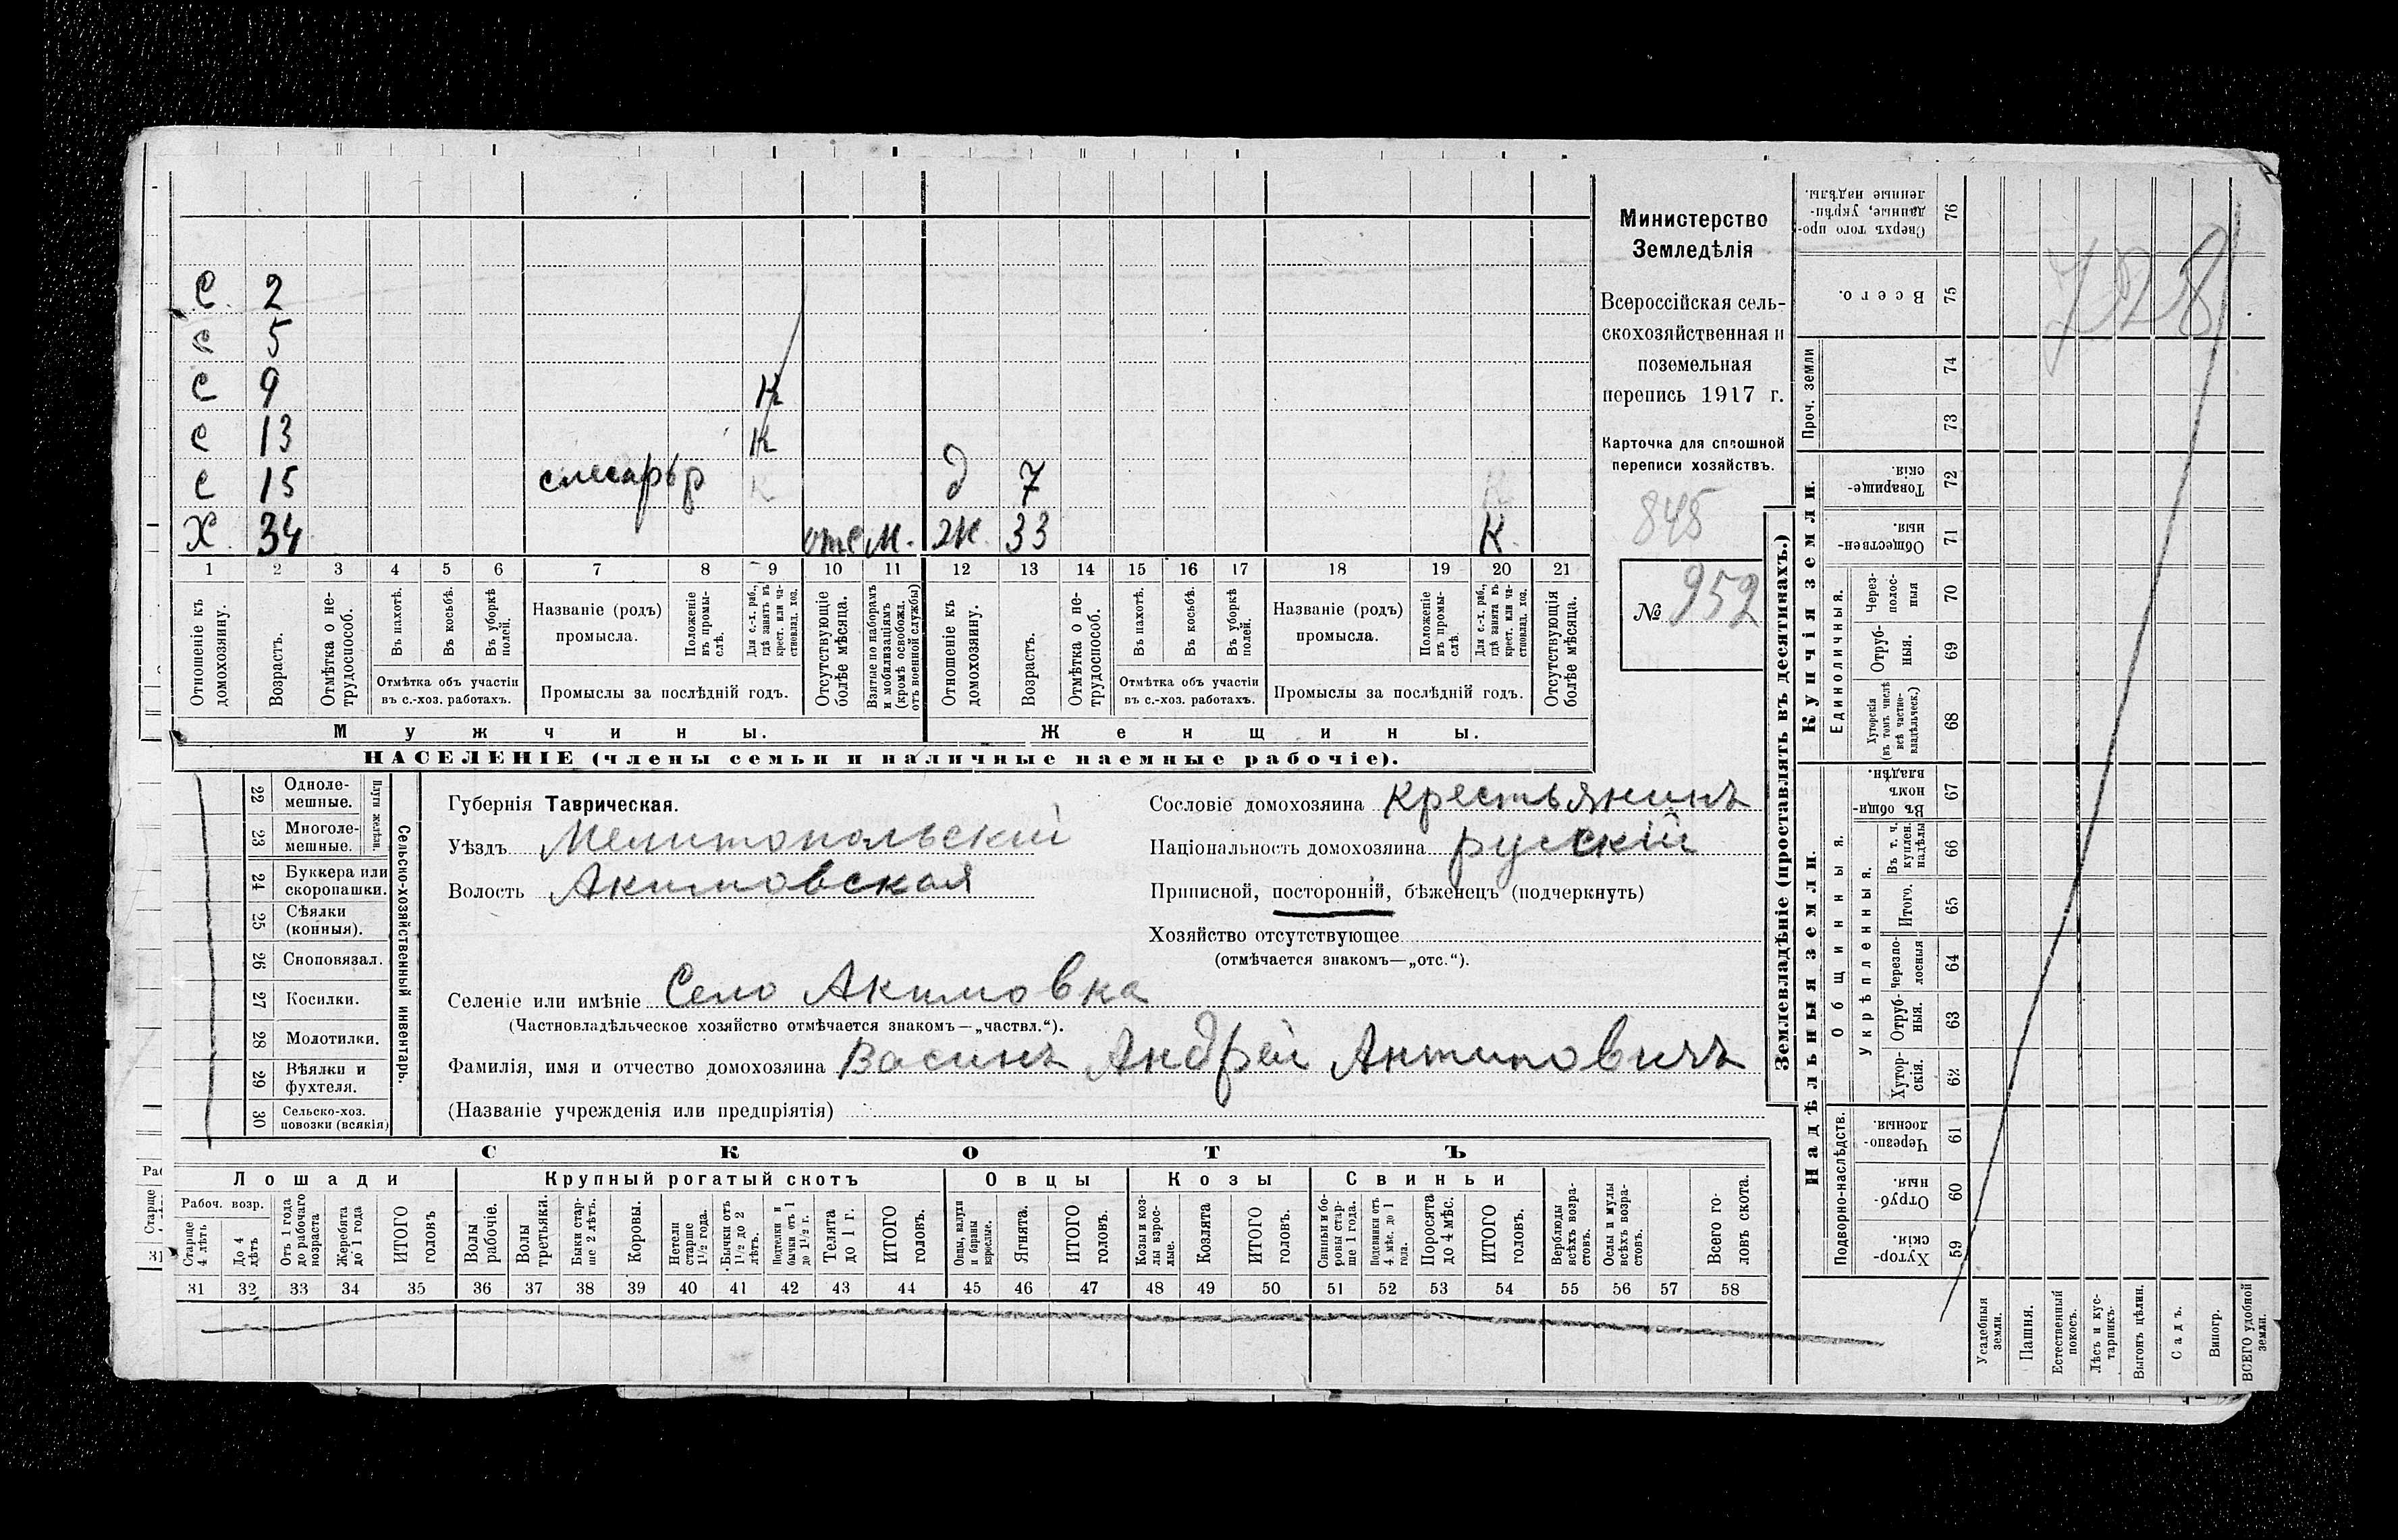 Министерство
Земледѣлія
Всероссійская сель-
скохозяйственная и
поземельная
перепись 1917 г.
Карточка для сплошной
переписи хозяйствъ.
848
№ 952
728
С. 2
С 5
С 9 К
С 13 К
С 15 слесарь р К д 7 К
Х. 34 отс М. Ж. 33 К.
1 2 3 4 5 6 7 8 9 10 11 12 13 14 15 16 17 18 19 20 21
Отношеніе къ домохозяину.
Возрастъ.
Отмѣтка о не-трудоспособ.
Въ пахотѣ.
Въ косьбѣ.
Въ уборкѣ полей.
Отмѣтка объ участіи въ с.-хоз. работахъ.
Названіе (родъ) промысла.
Положеніе въ промы-слѣ.
Для с.-х. раб., гдѣ занятъ въ крест. или ча-стновлад. хоз.
Промыслы за послѣдній годъ.
Отсутствующіе болѣе мѣсяца.
Взятые по наборамъ и мобилизаціямъ (кромѣ освобожд. отъ военной службы)
Отношеніе къ домохозяину.
Возрастъ.
Отмѣтка о не-трудоспособ.
Въ пахотѣ.
Въ косьбѣ.
Въ уборкѣ полей.
Отмѣтка объ участіи въ с.-хоз. работахъ.
Названіе (родъ) промысла.
Положеніе въ промы-слѣ.
Для с.-х. раб., гдѣ занята въ крест. или ча-стновлад. хоз.
Промыслы за послѣдній годъ.
Отсутствующія болѣе мѣсяца.
Мужчины. Женщины.
НАСЕЛЕНІЕ (члены семьи и наличные наемные рабочіе).
22 Одноле-мешные.
23 Многоле-мешные.
Плуги желѣзн.
24 Буккера или скоропашки.
25 Сѣялки (конныя).
26 Сноповязал.
27 Косилки.
28 Молотилки.
29 Вѣялки и фухтеля.
30 Сельско-хоз. повозки (всякія)
Сельско-хозяйственный инвентарь.
Губернія Таврическая.
Уѣздъ Мелитопольскій
Волость Акимовская
Сословіе домохозяина Крестьянинъ
Національность домохозяина русскій
Приписной, посторонній, бѣженецъ (подчеркнуть)
Хозяйство отсутствующее
(отмѣчается знакомъ—„отс.“).
Селеніе или имѣніе Село Акимовка
(Частновладѣльческое хозяйство отмѣчается знакомъ—„частвл.“).
Фамилія, имя и отчество домохозяина Васинъ Андрей Антиповичъ
(Названіе учрежденія или предпріятія)
СКОТЪ
Лошади Крупный рогатый скотъ Овцы Козы Свиньи
Рабоч. возр.
Старше 4 лѣтъ
До 4 лѣтъ
Отъ 1 года до рабочаго возраста
Жеребята до 1 года
ИТОГО головъ
Волы рабочіе.
Волы третьяки.
Быки стар-ше 2 лѣтъ.
Коровы.
Нетели старше 1½ года.
Бычки отъ 1½ до 2 лѣтъ.
Подтелки и бычки отъ 1 до 1½ г.
Телята до 1 г.
ИТОГО головъ.
Овцы, валухи и бараны взрослые.
Ягнята.
ИТОГО головъ.
Козы и коз-лы взрос-лые.
Козлята
ИТОГО головъ.
Свиньи и бо-ровы стар-ше 1 года.
Подсвинки отъ 4 мѣс. до 1 года.
Поросята до 4 мѣс.
ИТОГО головъ.
Верблюды всѣхъ возра-стовъ.
Ослы и мулы всѣхъ возра-стовъ.
Всего го-ловъ скота.
31 32 33 34 35 36 37 38 39 40 41 42 43 44 45 46 47 48 49 50 51 52 53 54 55 56 57 58
Землевладѣніе (проставлять въ десятинахъ.)
Купчія земли.
Надѣльныя земли.
Проч. земли
Единоличныя.
Общинныя.
Укрѣпленныя.
Подворно-наслѣдств.
Сверхъ того про-данные, укрѣп-ленные надѣлы. 76
Всего. 75
74
73
Товарище-скія. 72
Обществен-ныя. 71
Через-полос-ныя 70
Отруб-ныя. 69
Хуторскія (въ томъ числѣ всѣ частно-владѣльческ.) 68
Въ общин-номъ владѣн. 67
Въ т. ч. куплен. надѣлы 66
Итого. 65
Черезпо-лосныя 64
Отруб-ныя. 63
Хутор-скія. 62
Черезпо-лосныя. 61
Отруб-ныя. 60
Хутор-скія. 59
Усадебныя земли.
Пашня.
Естественный покосъ.
Лѣсъ и кус-тарникъ.
Выгонъ цѣлин.
Садъ.
Виногр.
ВСЕГО удобной земли.